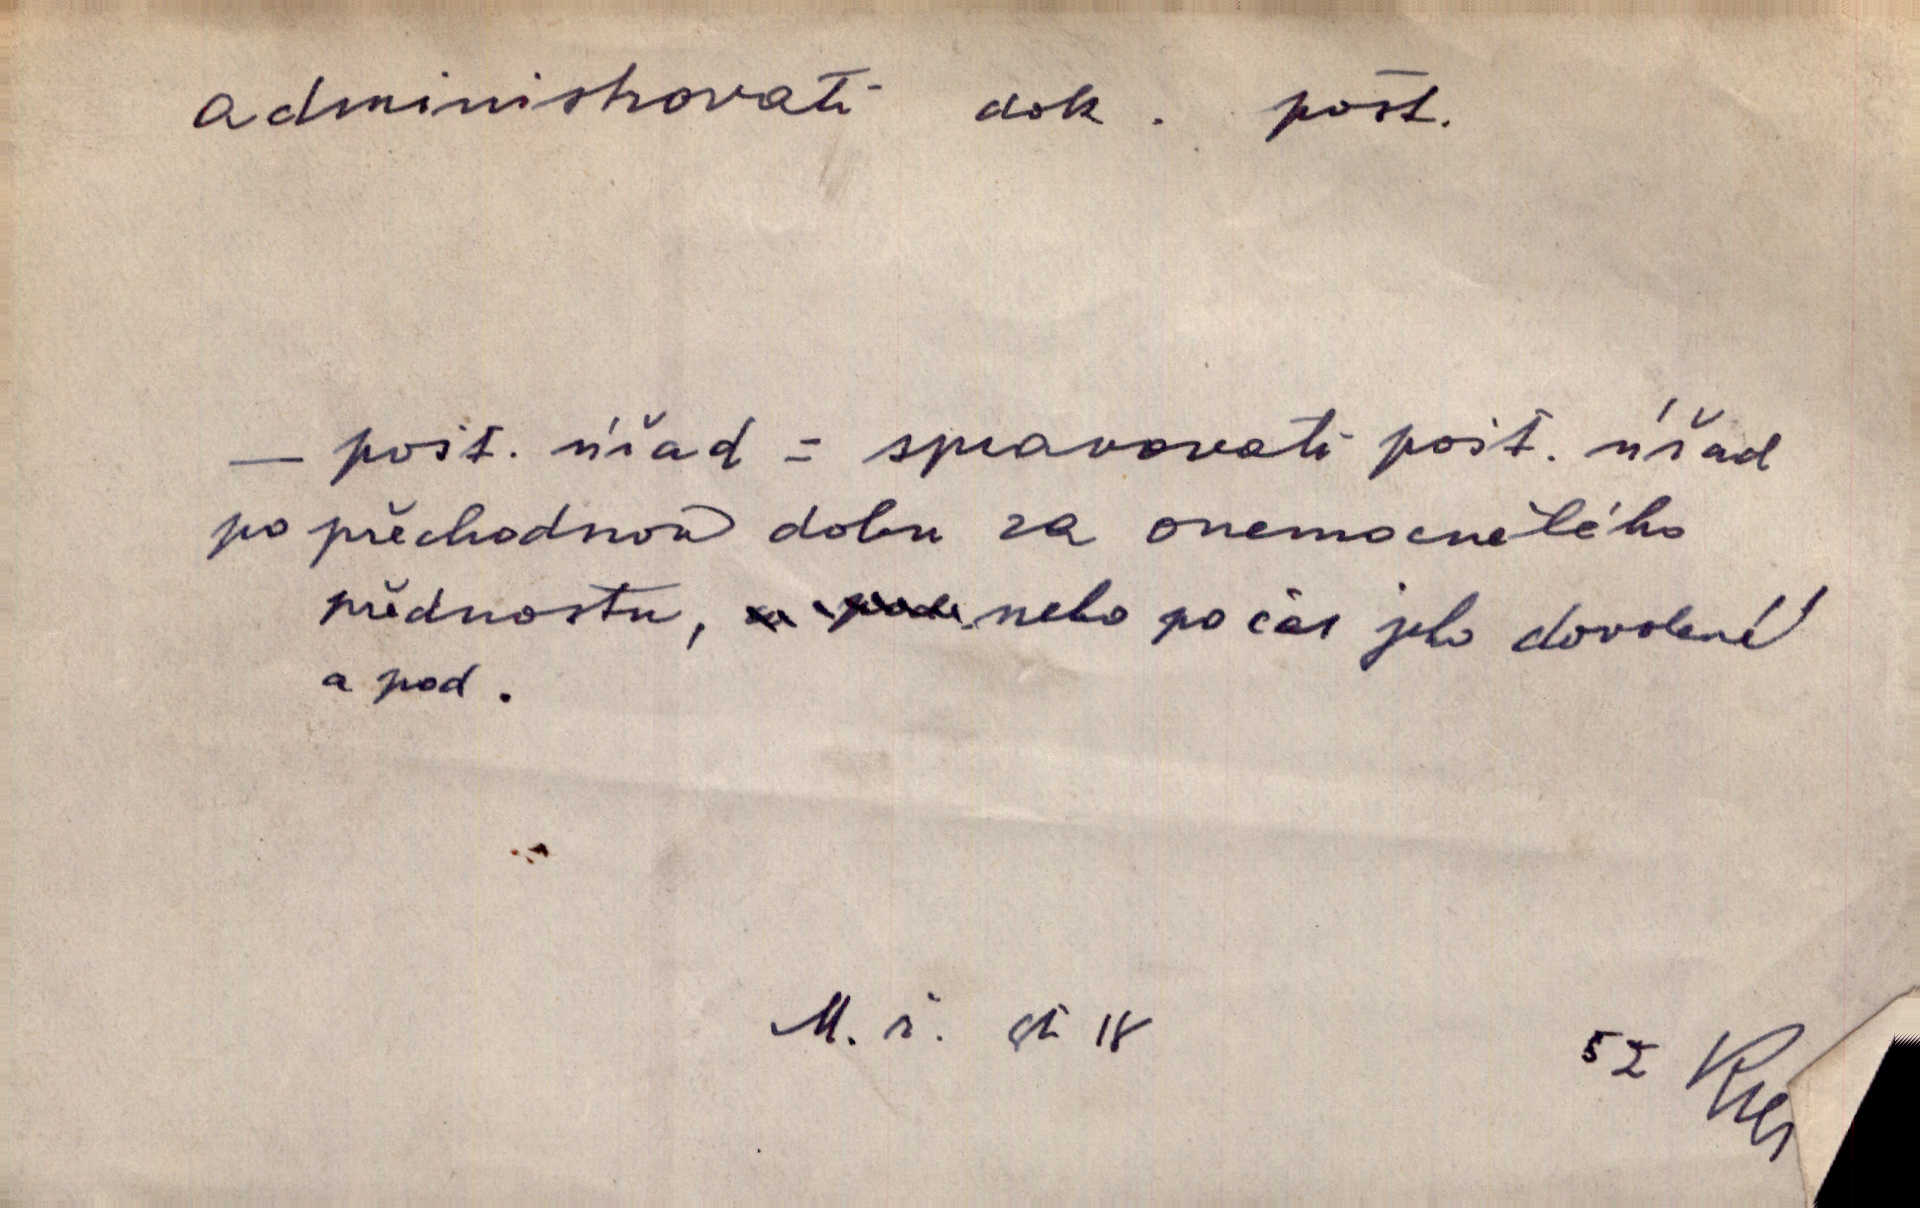 administrovati dok. pošt.
— pošt. úřad = spravovati pošt. úřad
po přechodnou dobu za onemocnělého
přednostu, nebo po čas jeho dovolené
a pod.
M. ř. 18
52